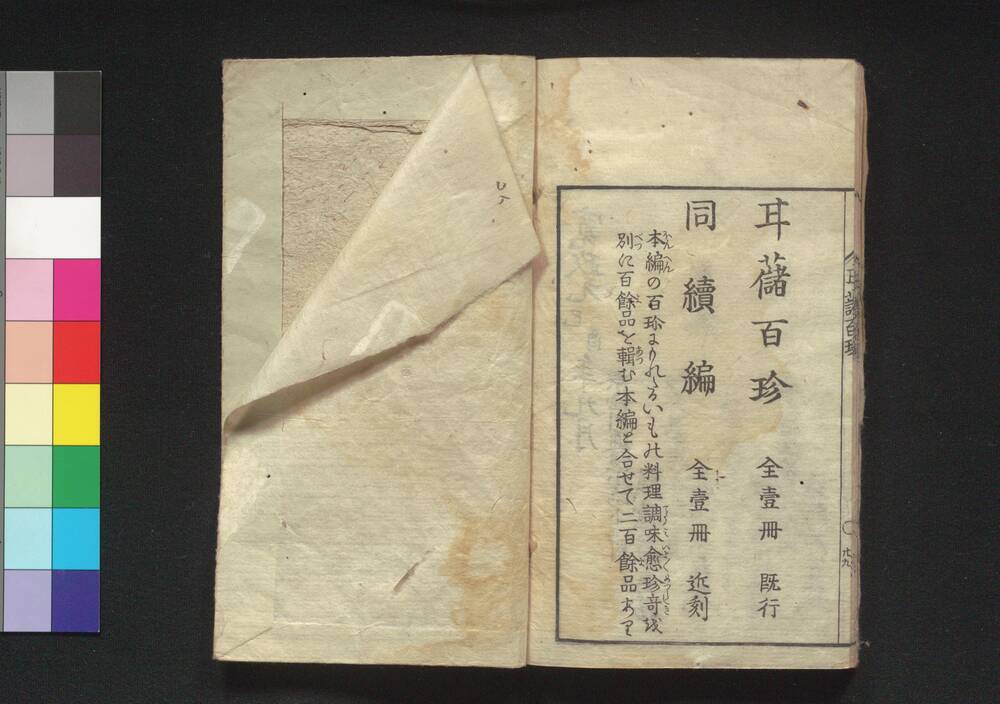 甘藷百珍 全壹冊 既行
同續編 全壹冊 近刻
本編の百珍にもれたるいもの料理調味愈珍奇を
別に百餘品を輯む本編と合せて二百餘品あり